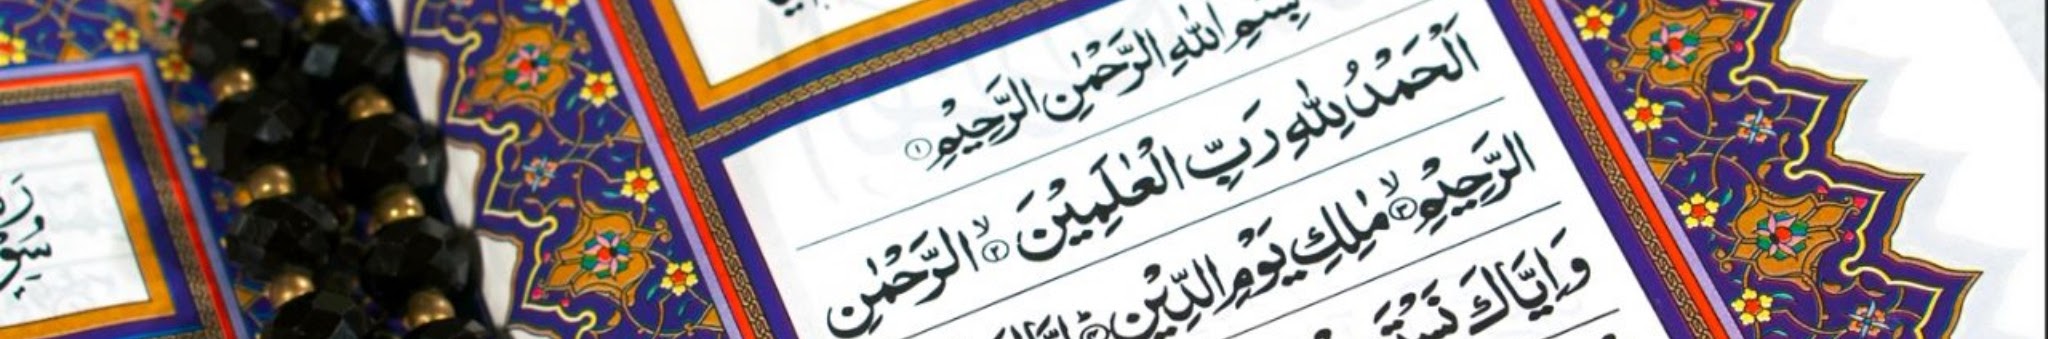 بِسْمِ اللهِ الرَّحْمٰنِ الرَّحِيْمِ ۝١
اَلْحَمْدُ لِلّٰهِ رَبِّ الْعٰلَمِيْنَ ۝٢ۙ الرَّحْمٰنِ
الرَّحِيْمِ ۝٣ۙ مٰلِكِ يَوْمِ الدِّيْنِ
وَاِيَّاكَ